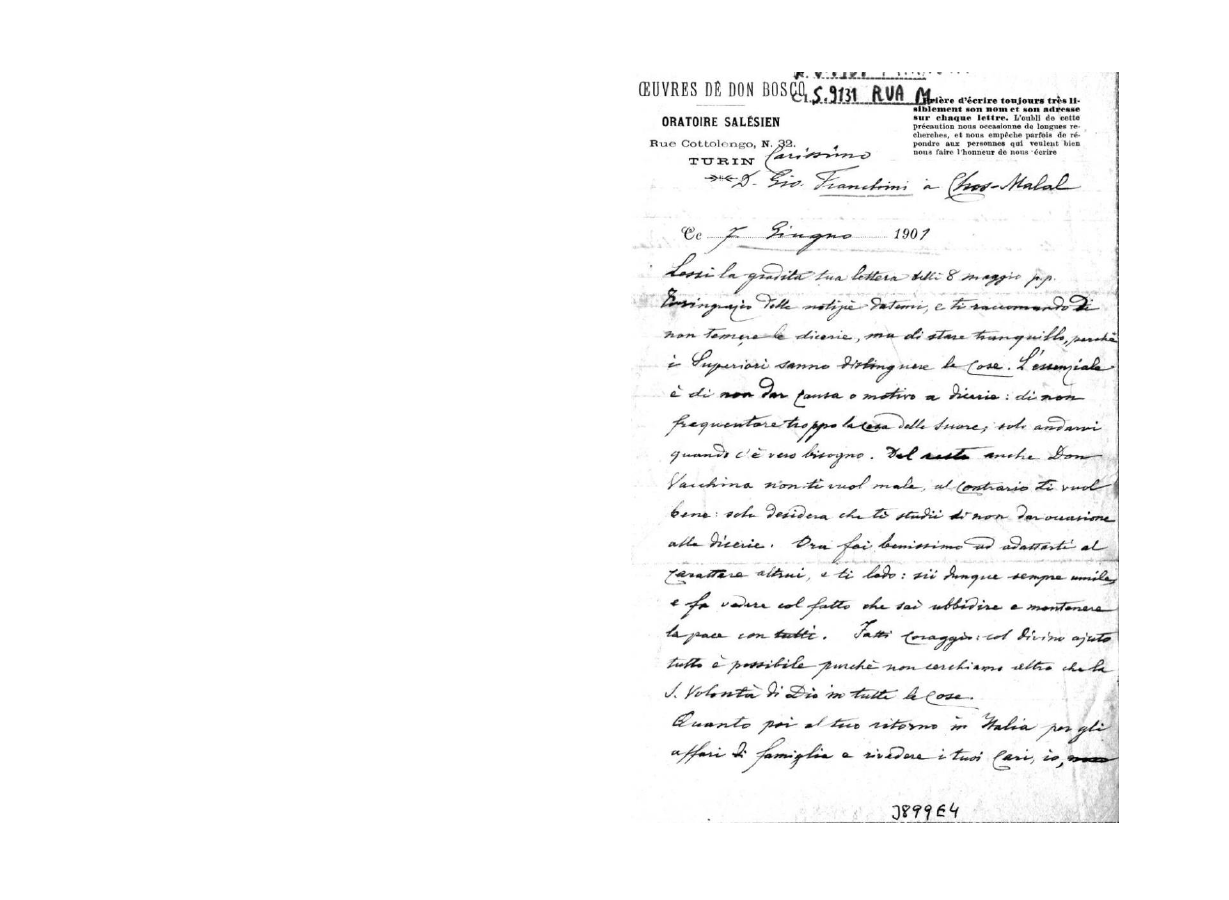 ŒUVRES DE DON BOSCO
S.9131 RUA M.
ORATOIRE SALÉSIEN
Rue Cottolengo, N. 32.
TURIN
Prière d'écrire toujours très li-
siblement son nom et son adresse
sur chaque lettre. L'oubli de cette
précaution nous occasionne de longues re-
cherches, et nous empêche parfois de ré-
pondre aux personnes qui veulent bien
nous faire l'honneur de nous écrire
Carissimo
D. Gio. Franchini a Chos-Malal
Ce 7 Giugno 1901
Lessi la gradita tua lettera delli 8 maggio p.p.
Ti ringrazio delle notizie datemi, e ti raccomando di
non temere le dicerie, ma di stare tranquillo, perchè
i Superiori sanno distinguere le cose. L'essenziale
è di non dar causa o motivo a dicerie: di non
frequentare troppo la casa delle Suore; solo andarvi
quando c'è vero bisogno. Del resto anche Don
Vacchina non ti vuol male, al contrario ti vuol
bene: solo desidera che ti studii di non dar occasione
alle dicerie. Ora fai benissimo ad adattarti al
carattere altrui, e ti lodo: sii dunque sempre umile,
e fa vedere col fatto che sai ubbidire e mantenere
la pace con tutti. Fatti coraggio: col divino ajuto
tutto è possibile purchè non cerchiamo altro che la
S. Volontà di Dio in tutte le cose.
Quanto poi al tuo ritorno in Italia per gli
affari di famiglia e rivedere i tuoi cari, io,
J899E4